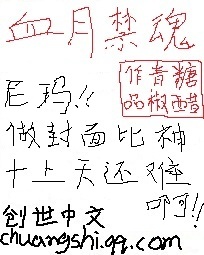 血月禁魂
糖醋
青椒
作品
尼玛!!
做封面比神
十上天还难
啊!!
创世中文
chuangshi.qq.com